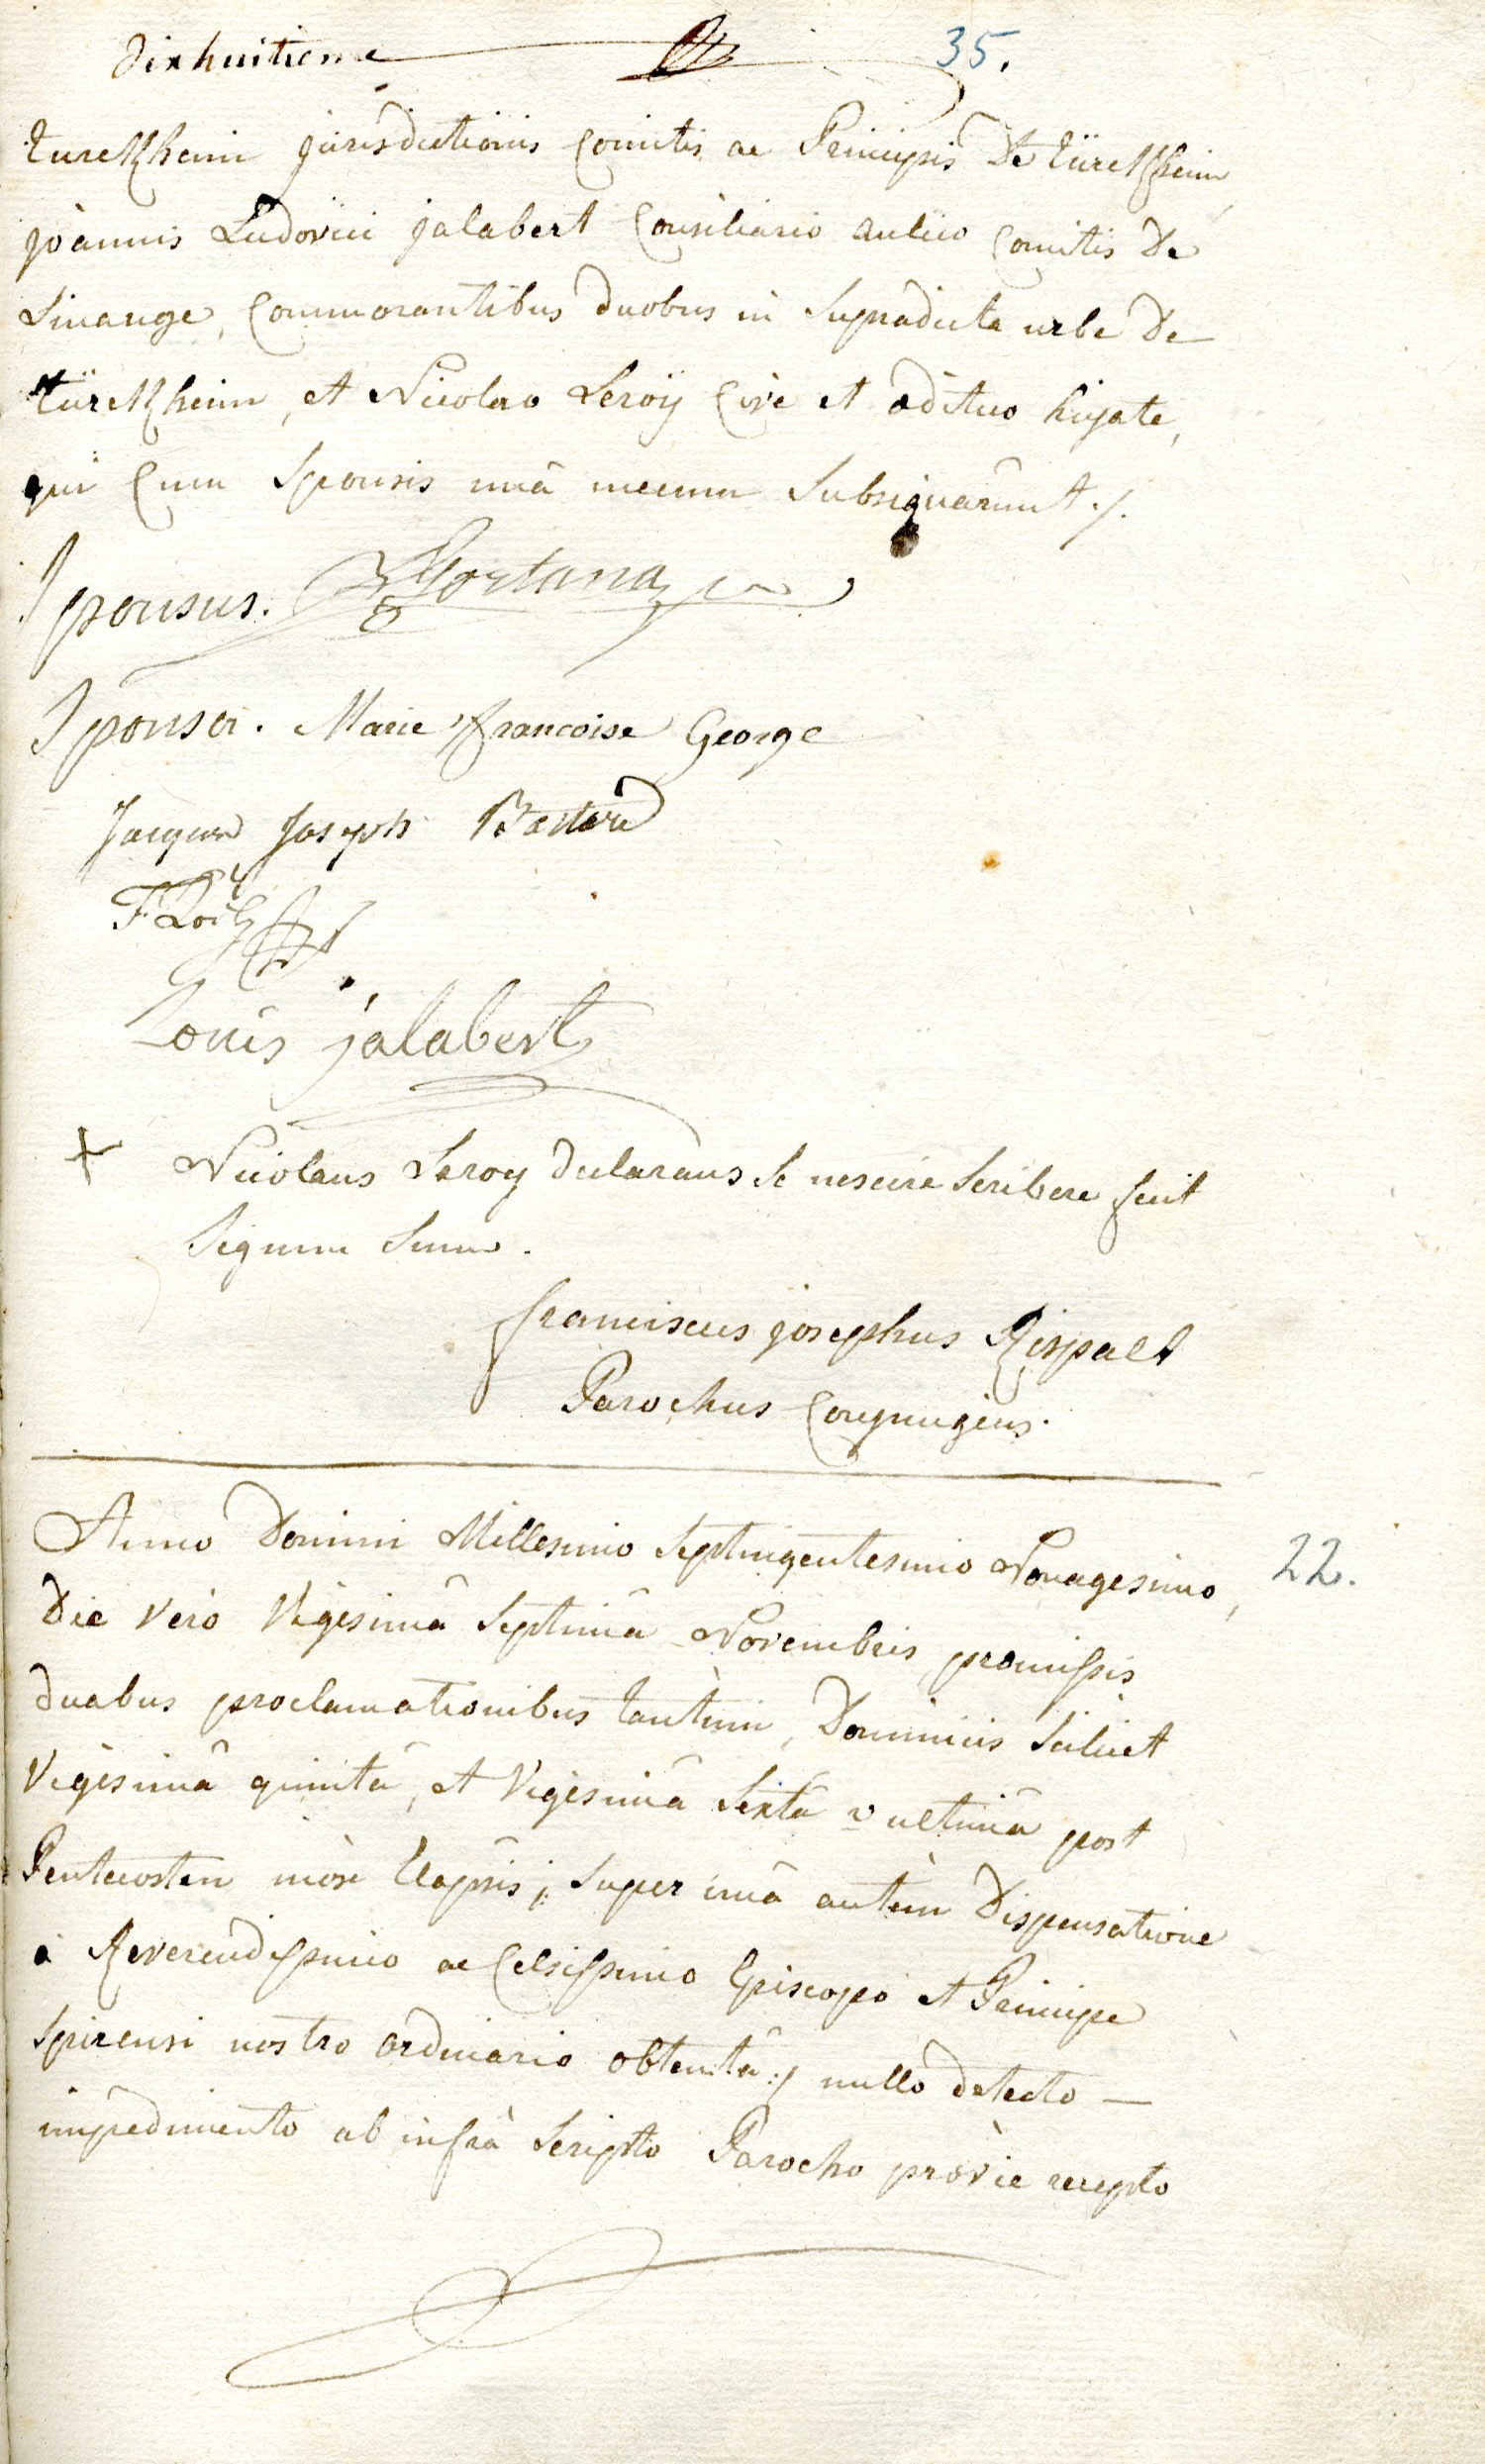 dixhuitieme 35.
türckheim jurisdictionis Comitis ac Principis De türckheim
joannis Ludovici jalabert Consiliario aulico Comitis De
Linange, Commorantibus duobus in Supradicta urbe De
türckheim, et Nicolao Leroÿ Cive et ædituo hujate,
qui Cum Sponsis unâ mecum Subsignârunt ./.
Sponsus. Fortana
Sponsa. Marie francoise George
Jacques Joseph Bastard
Louis jalabert
+ Nicolaus Leroy declarans Se nescire Scribere fecit
Signum Suum.
franciscus josephus Rispalt
Parochus Conjungens.
Anno Domini Millesimo Septingentesimo Nonagesimo, 22.
Die vero Vigesimâ Septimâ Novembris præmissis
duabus proclamationibus tantùm, Dominicis Scilicet
Vigesimâ quintâ, et Vigesimâ Sextâ v ultimâ post
Pentecosten mòx Elapsis; Super unâ autèm Dispensatione
à Reverendissimo ac Celsissimo Episcopo et Principe
Spirensi nostro ordinario obtentâ; nullo detecto —
impedimento ab infrà Scripto Parocho prævie recepto